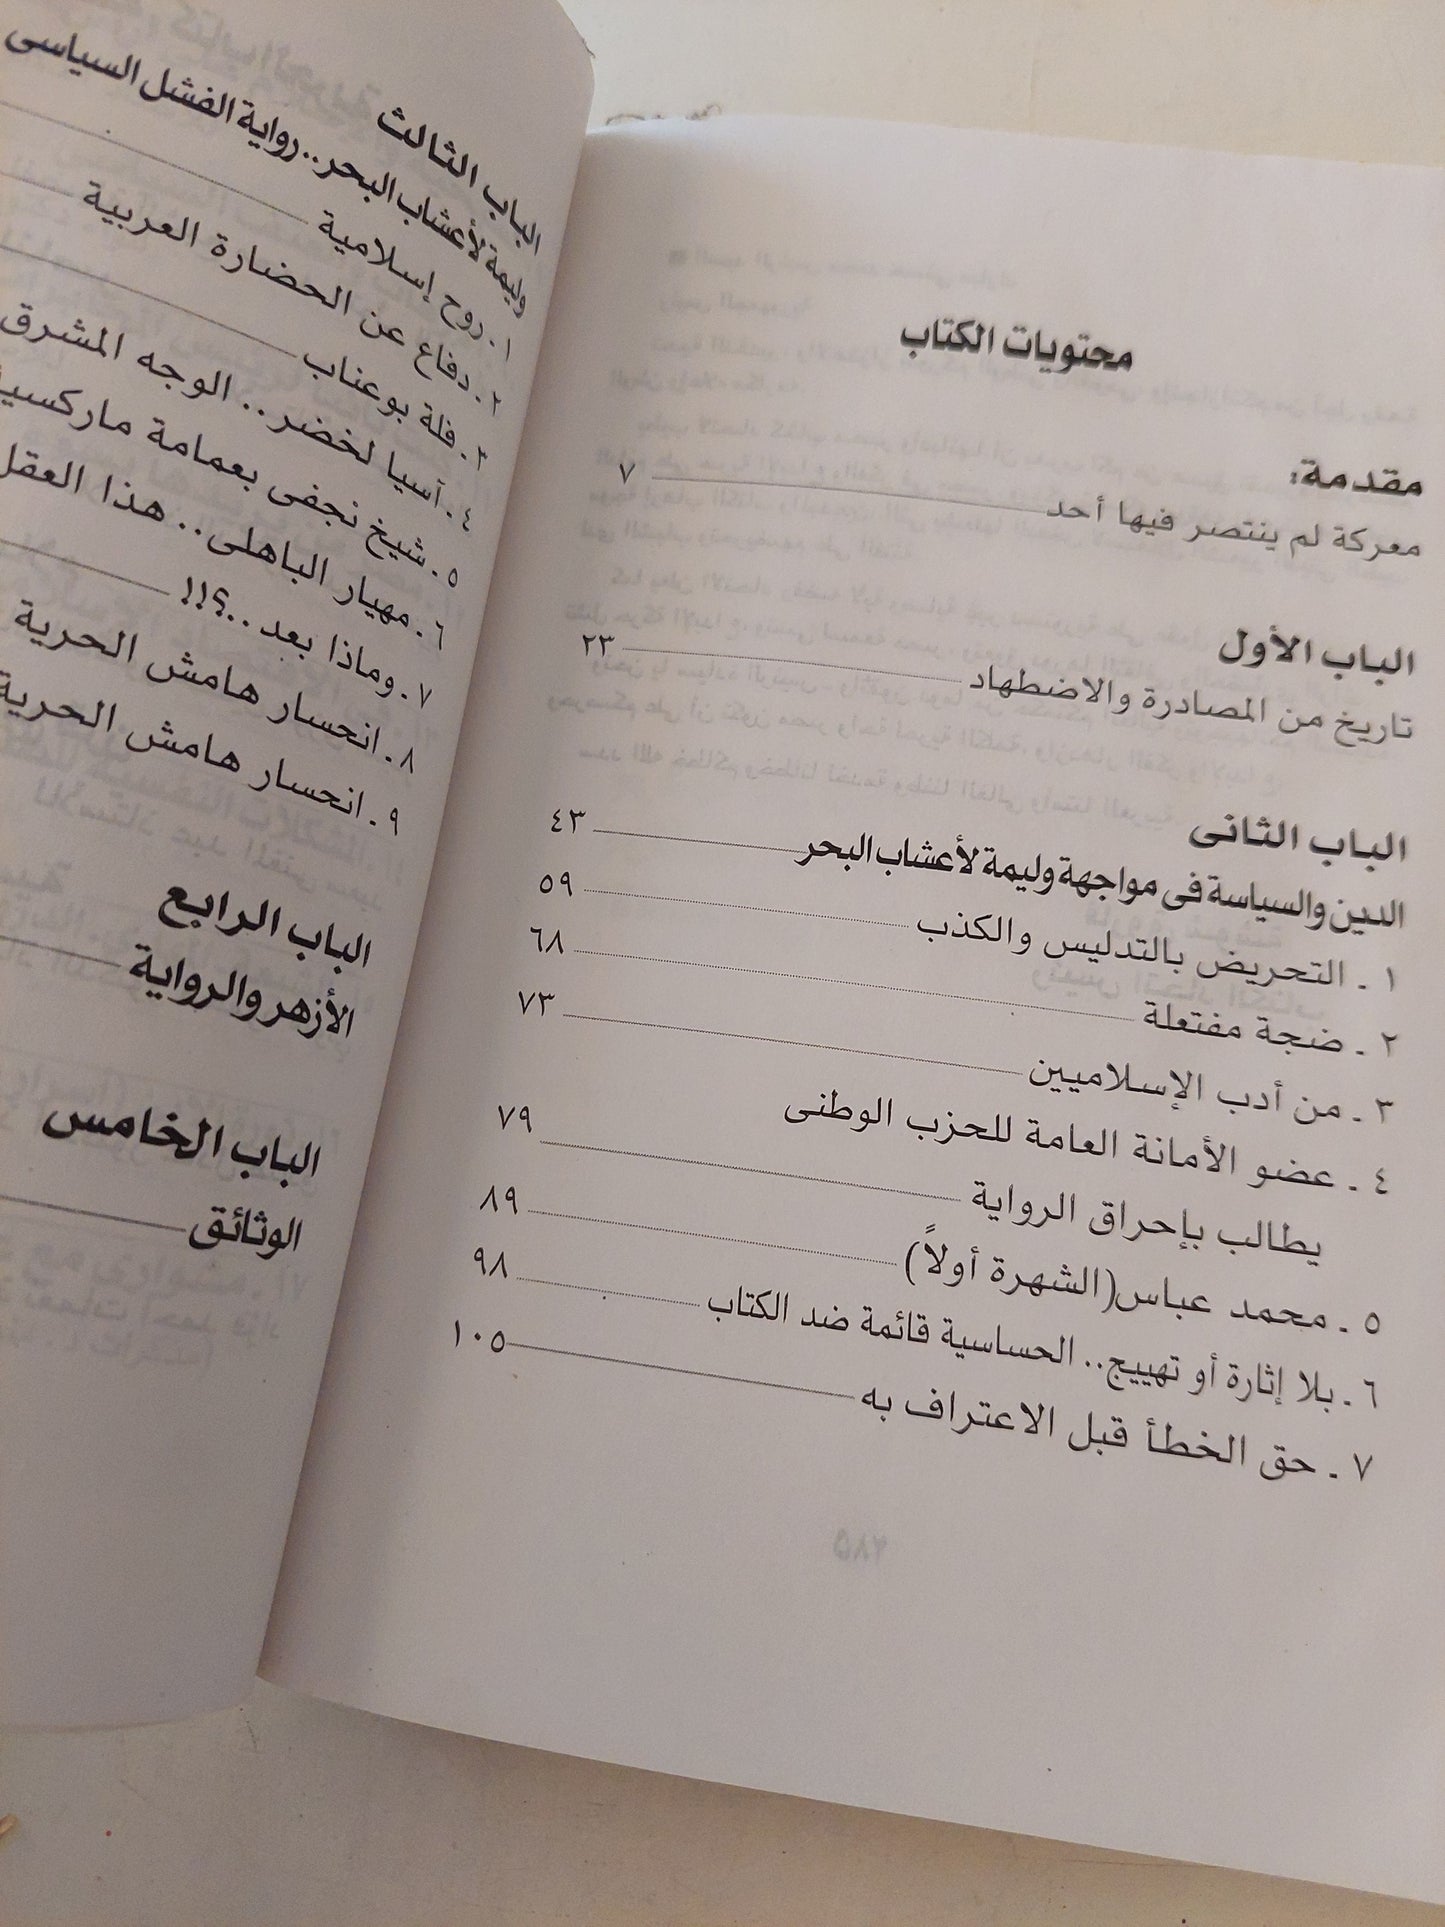 محتويات الكتاب
مقدمة:
معركة لم ينتصر فيها أحد ٧
الباب الأول
تاريخ من المصادرة والاضطهاد ٢٣
الباب الثانى
الدين والسياسة فى مواجهة وليمة لأعشاب البحر ٤٣
١ ـ التحريض بالتدليس والكذب ٥٩
٢ ـ ضجة مفتعلة ٦٨
٣ ـ من أدب الإسلاميين ٧٣
٤ ـ عضو الأمانة العامة للحزب الوطنى
يطالب بإحراق الرواية ٧٩
٥ ـ محمد عباس(الشهرة أولاً) ٨٩
٦ ـ بلا إثارة أو تهييج.. الحساسية قائمة ضد الكتاب ٩٨
٧ ـ حق الخطأ قبل الاعتراف به ١٠٥
٢٨٥
الباب الثالث
وليمة لأعشاب البحر..رواية الفشل السياسى
١ ـ روح إسلامية
٢ ـ دفاع عن الحضارة العربية
٣ ـ فلة بوعناب
٤ ـ آسيا لخضر.. الوجه المشرق
٥ ـ شيخ نجفى بعمامة
٦ ـ مهيار الباهلى.. هذا العقل
٧ ـ وماذا بعد..؟!!
٨ ـ انحسار هامش الحرية
٩ ـ انحسار هامش الحرية
الباب الرابع
الأزهر والرواية
الباب الخامس
الوثائق